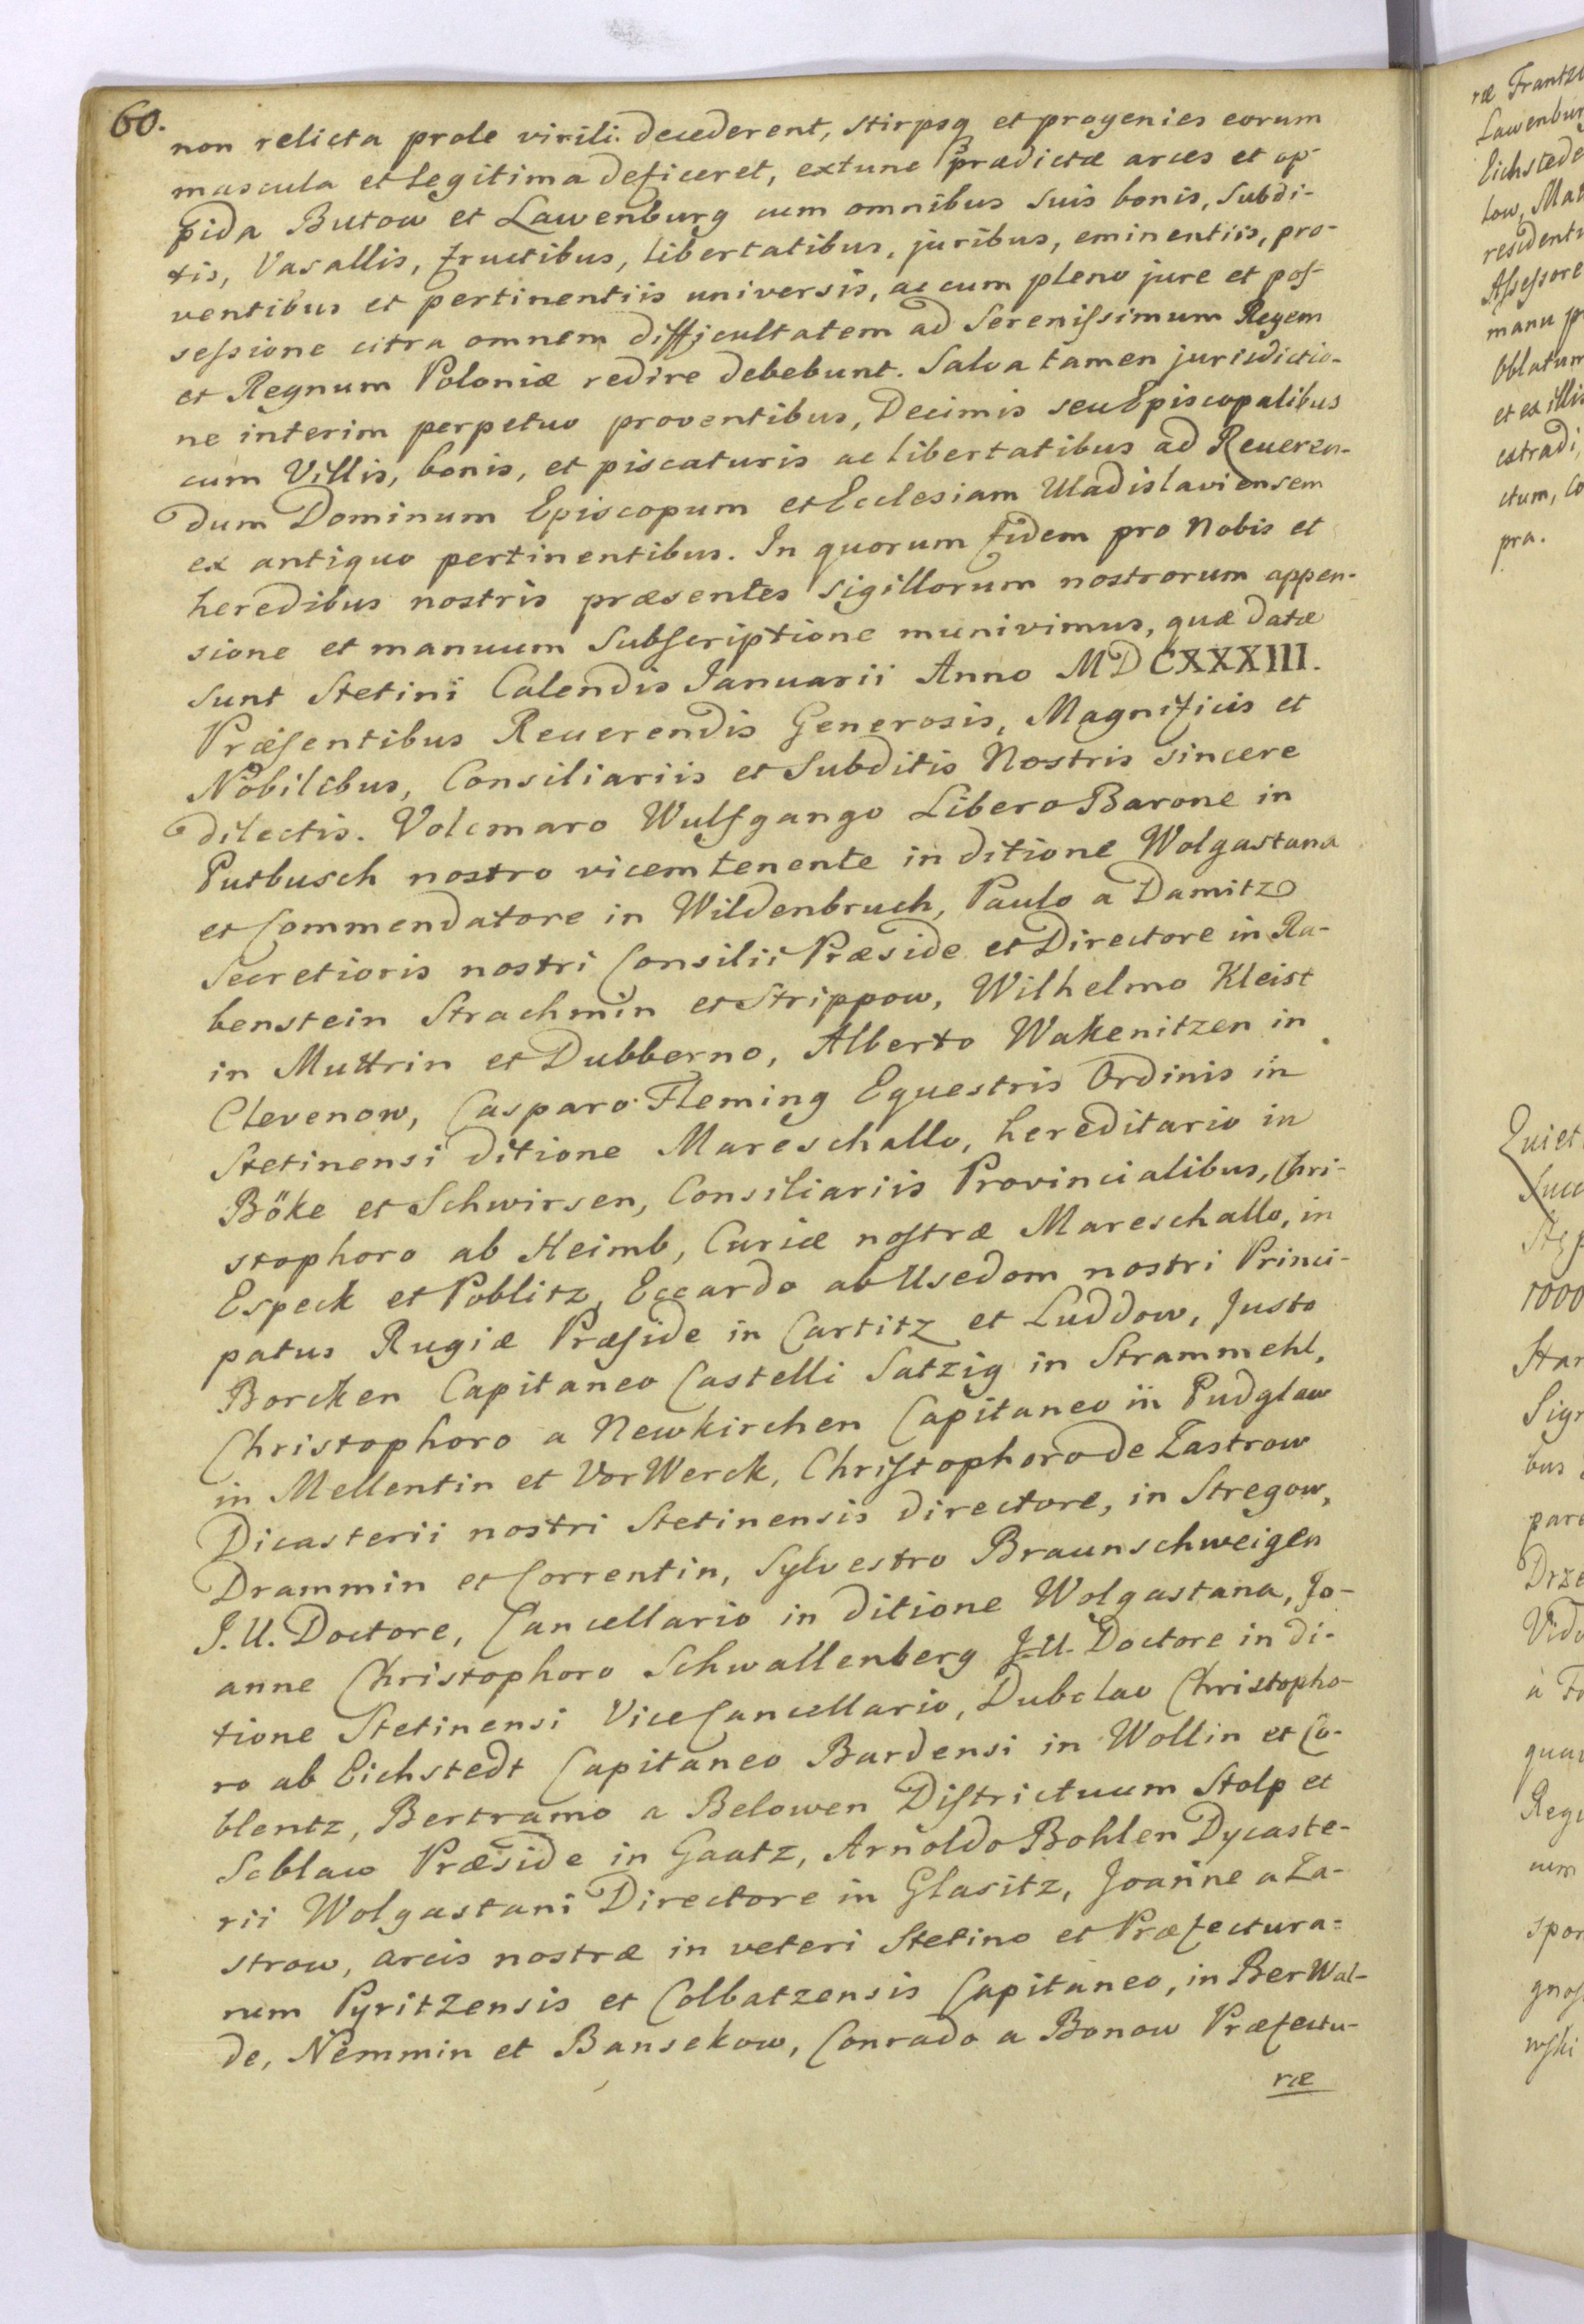 60.
non relicta prole virili decederent, stirpsq et progenies eorum
mascula et legitima deficeret, extunc prædictæ arces et op-
pida Butow et Lawenburg cum omnibus suis bonis, Subdi-
tis, Vasallis, fructibus, libertatibus, juribus, eminentiis, pro-
ventibus et pertinentiis universis, ac cum pleno jure et pos-
sessione citra omnem difficultatem ad Serenissimum Regem
et Regnum Poloniæ redire debebunt. Salva tamen jurisdictio-
ne interim perpetuo proventibus, Decimis seu Episcopalibus
cum Villis, bonis, et piscaturis ac libertatibus ad Reueren-
dum Dominum Episcopum et Ecclesiam Uladislauiensem
ex antiquo pertinentibus. In quorum fidem pro Nobis et
heredibus nostris præsentes Sigillorum nostrorum appen-
sione et manuum Subscriptione munivimus, quæ datæ
sunt Stetini Calendis Januarii Anno MDCXXXIII.
Præsentibus Reuerendis Generosis, Magnificis et
Nobilibus, Consiliariis et Subditis Nostris sincere
dilectis. Volcmaro Wulfgango Libero Barone in
Putbusch nostro vicem tenente in ditione Wolgastana
et Commendatore in Wildenbruch, Paulo a Damitz
Secretioris nostri Consilii Præside et Directore in Ra-
benstein Strachmin et Strippow, Wilhelmo Kleist
in Muttrin et Dubberno, Alberto Wakenitzen in
Clevenow, Casparo Fleming Equestris Ordinis in
Stetinensi ditione Mareschallo, hereditario in
Böke et Schwirsen, Consiliariis Provincialibus, Chri-
stophoro ab Heimb, Curiæ nostræ Mareschallo, in
Especk et Poblitz, Eccardo ab Usedom nostri Princi-
patus Rugiæ Præside in Cartitz et Luddow, Justo
Borcken Capitaneo Castelli Satzig in Strammehl,
Christophoro a Newkirchen Capitaneo in Pudglaw
in Mellentin et VorWerck, Christophoro de Zastrow
Dicasterii nostri Stetinensis directore, in Stregow,
Drammin et Correntin, Sylvestro Braunschweigen
J.U. Doctore, Cancellario in ditione Wolgastana, Jo-
anne Christophoro Schwallenberg J.U. Doctore in di-
tione Stetinensi ViceCancellario, Dubclao Christopho-
ro ab Eichstedt Capitaneo Bardensi in Wollin et Co-
blentz, Bertramo a Belowen Districtuum Stolp et
Scblaw Præside in Gaatz, Arnoldo Bohlen Dycaste-
rii Wolgastani Directore in Glasitz, Joanne a Za-
strow, arcis nostræ in veteri Stetino et Præfectura-
rum Pyritzensis et Colbatzensis Capitaneo, in BerWal-
de, Nemmin et Bansekow, Conrado a Bonow Præfectu-
ræ
ræ Frantzb
Lawenbur
Eichstede
tow, Mat
residenti
Assessore
manu p
Oblatum
et ex illis
extradi
ctum, Co
pra.
Quiet
Succ
1000
Star
Sigr
bus
pare
Drze
Vido
à Fo
qua
Regi
cum
spon
gnos
wski